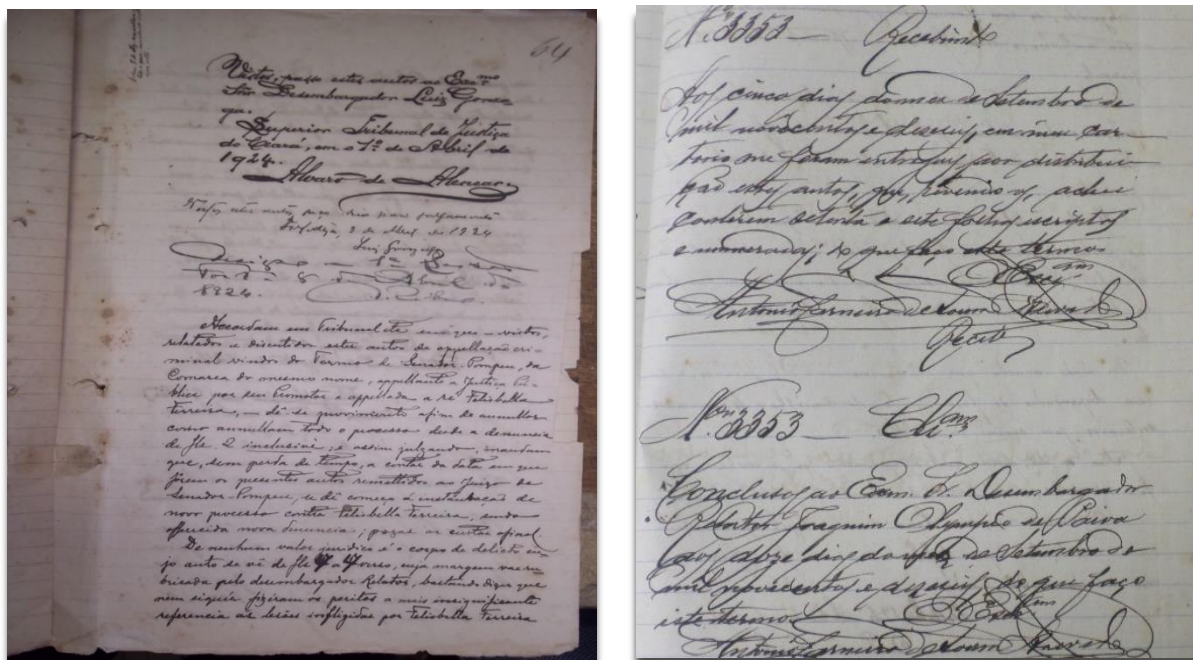 64
Vistos, passo estes autos ao Exmo
Snr. Desembargador Luiz Gonza-
ga.
Superior Tribunal de Justiça
do Ceará, em o 1º de Abril de
1924.
Alvaro de Alencar.
Vistos estes autos, peço dia para julgamento
Fortaleza, 3 de Abril de 1924
Luiz Gonzaga
8 de Abril de
1924.
Accordam em Tribunal etc. – vistos,
relatados e discutidos estes autos de appellação cri-
minal vindos do Termo de Senador Pompeu, da
Comarca do mesmo nome, appellante a Justiça Pu-
blica por seu Promotor e appellada a ré Felisbella
Ferreira, – dá-se provimento afim de annullar
como annullam todo o processo desde a denuncia
de fls. 2 inclusive, e assim julgando, mandam
que, sem perda de tempo, a contar da data em que
forem os presentes autos remettidos ao Juizo de
Senador Pompeu, se dê começo á instauração de
novo processo contra Felisbella Ferreira, sendo
offerecida nova denuncia, pagas as custas afinal
De nenhum valor juridico é o corpo de delicto cu-
jo auto se vê de fls a verso, cuja margem vae ru-
bricada pelo desembargador Relator, bastando dizer que
nem siquer fizeram os peritos a mais insignificante
referencia as lesões infligidas por Felisbella Ferreira
N. 3353 — Recebimto
Aos cinco dias do mez de Setembro de
mil novecentos e deseseis, em meu car-
torio me foram entregues por distribui-
ção estes autos, que, revendo os, achei
conterem setenta e sete folhas escriptas
e numeradas; do que faço este termo.
O Escram
Antonio Carneiro de Souza Azevedo
Recebi
N. 3353 — Clsam
Conclusos ao Exm. Sr. Desembargador
Relator Joaquim Olympio de Paiva
aos doze dias do mez de Setembro de
mil novecentos e deseseis, do que faço
este termo.
O Escram
Antonio Carneiro de Souza Azevedo